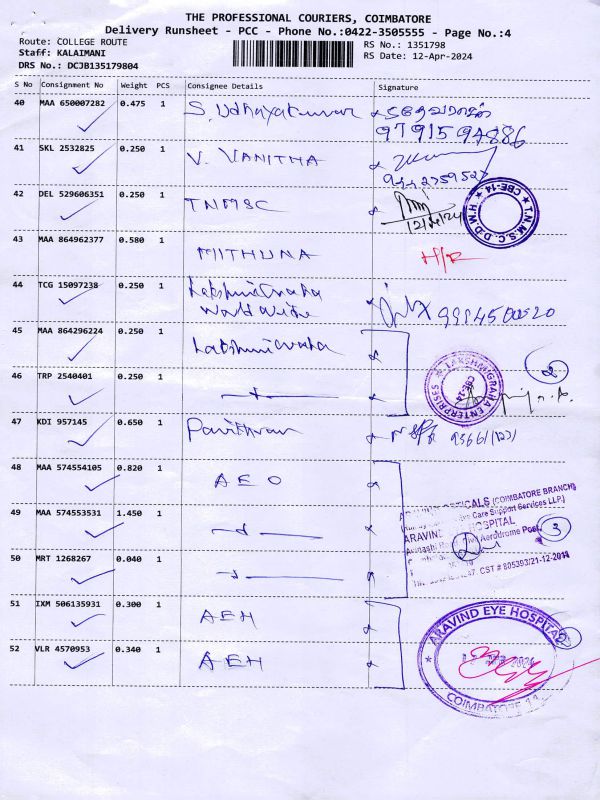 THE PROFESSIONAL COURIERS, COIMBATORE
Delivery Runsheet - PCC - Phone No.:0422-3505555 - Page No.:4
Route: COLLEGE ROUTE
RS No.: 1351798
Staff: KALAIMANI
RS Date: 12-Apr-2024
DRS No.: DCJB135179804
S No Consignment No Weight PCS Consignee Details Signature
40 MAA 650007282 0.475 1 S. Udhayakumar
9791594886
41 SKL 2532825 0.250 1 V. VANITHA
9442759527
42 DEL 529606351 0.250 1 TNMSC
12/4/24
T.N.M.S.C. D.D.W.H
CBE-14
43 MAA 864962377 0.580 1 MITHUNA H/R
44 TCG 15097238 0.250 1 Lakshmi Graha
World Wide
45 MAA 864296224 0.250 1 Lakshmi Graha
46 TRP 2540401 0.250 1
LAKSHMIGRAHA ENTERPRISES
CBE-14
2
47 KDI 957145 0.650 1
48 MAA 574554105 0.820 1 AEO
49 MAA 574553531 1.450 1
(COIMBATORE BRANCH)
Care Support Services LLP.)
ARAVIND HOSPITAL
Aerodrome Post,
CST # 805393/21-12-2011
3
50 MRT 1268267 0.040 1
51 IXM 506135931 0.300 1 AEH
52 VLR 4570953 0.340 1 AEH
ARAVIND EYE HOSPITAL
COIMBATORE
2